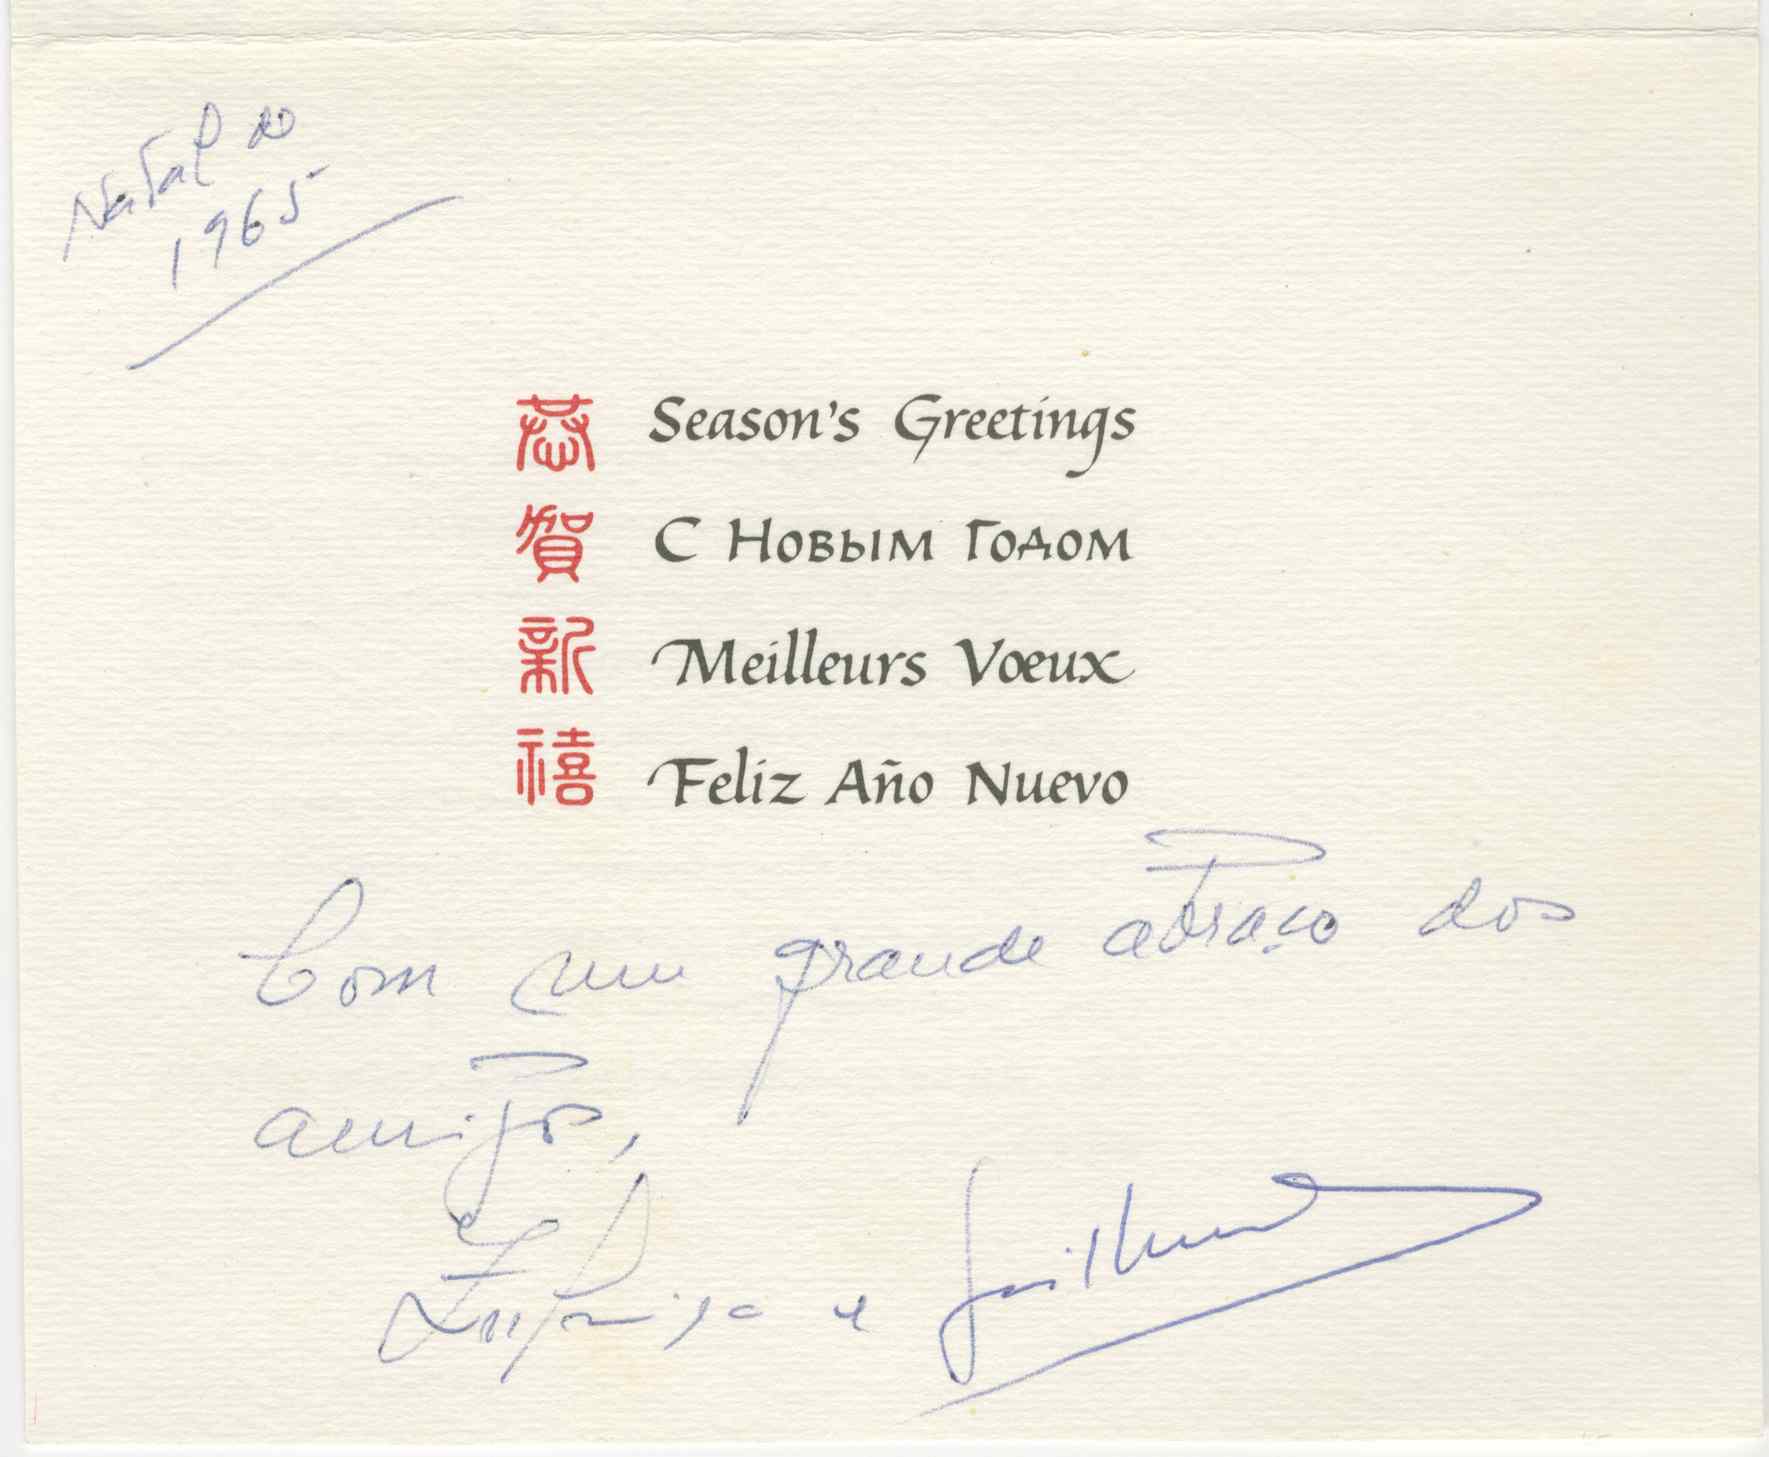 Natal de
1965
恭賀新禧
Season's Greetings
С Новым Годом
Meilleurs Vœux
Feliz Año Nuevo
Com um grande abraço dos
amigos,
e